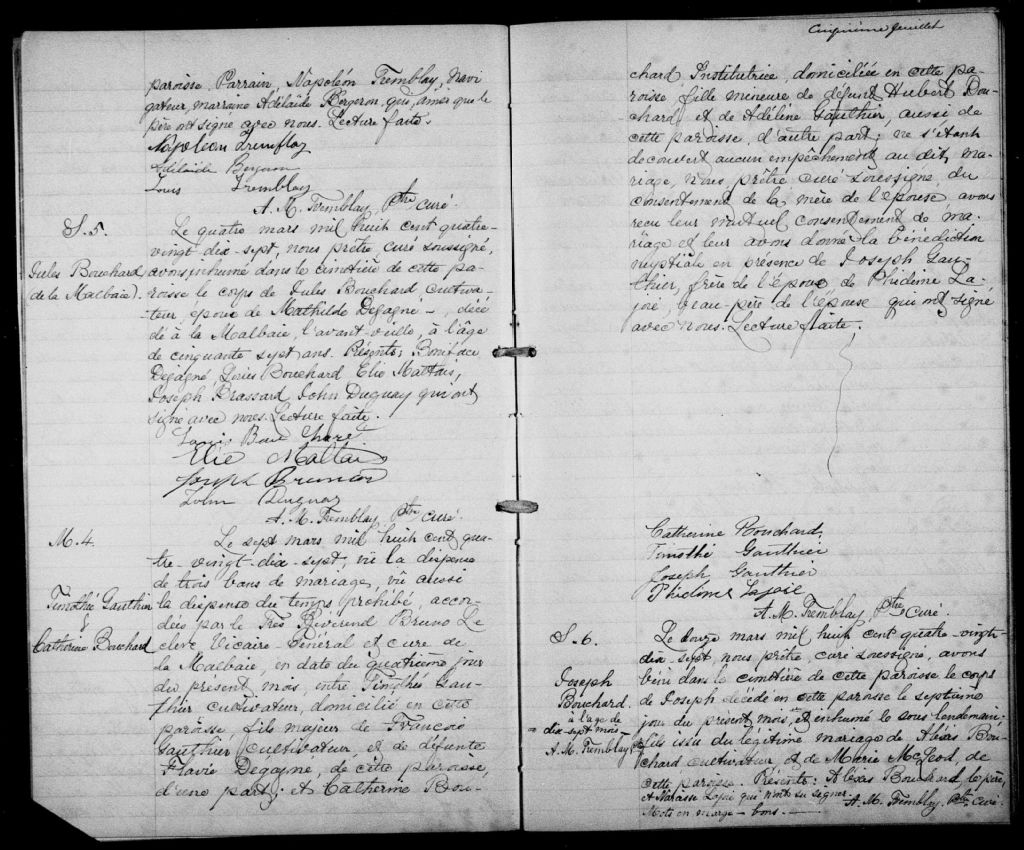 paroisse. Parrain, Napoléon Tremblay, navi
gateur, marraine Adélaide Bergeron, qui, ainsi que le
père ont signé avec nous. Lecture faite.
Napoléon Tremblay
Adélaide Bergeron
Louis Tremblay
A. M. Tremblay Ptre curé.
S. 5.
Jules Bouchard
(de la Malbaie).
Le quatre mars mil huit cent quatre-
vingt-dix-sept, nous prêtre curé soussigné,
avons inhumé dans le cimetière de cette pa-
roisse le corps de Jules Bouchard cultiva-
teur époux de Mathilde Dégagné -, décé
dé à la Malbaie, l'avant-veille, à l'âge
de cinquante sept ans. Présents; Boniface
Dégagné, Bouchard, Elie Maltais,
Joseph Brassard, John Duguay qui ont
signé avec nous. Lecture faite.
Elie Maltais
Joseph
John Duguay
A. M. Tremblay, Ptre curé.
M. 4.
Timothé Gauthier
&
Catherine Bouchard
Le sept mars mil huit cent qua-
tre-vingt-dix-sept, vu la dispense
de trois bans de mariage, vu aussi
la dispense du temps prohibé, accor-
dées par le Très Révérend Bruno Le
clerc Vicaire-Général et curé de
la Malbaie, en date du quatrième jour
du présent mois, entre Timothé Gau-
thier cultivateur, domicilié en cette
paroisse, fils majeur de François
Gauthier cultivateur, et de défunte
Flavie Dégagné, de cette paroisse,
d'une part; et Catherine Bou-
Cinquième feuillet
chard Institutrice, domiciliée en cette pa-
roisse, fille mineure de défunt Hubert Bou-
chard et de Adéline Gauthier, aussi de
cette paroisse, d'autre part; ne s'étant
découvert aucun empêchement au dit ma-
riage, nous, prêtre curé soussigné, du
consentement de la mère de l'épouse avons
reçu leur mutuel consentement de ma-
riage et leur avons donné la bénédiction
nuptiale en présence de Joseph Gau-
thier, frère de l'époux, de Phidime La-
joie, beau-père de l'épouse qui ont signé
avec nous. Lecture faite.
Catherine Bouchard,
Timothé Gauthier
Joseph Gauthier
Phidime Lajoie
A. M. Tremblay Ptre Curé.
S. 6.
Joseph
Bouchard.
à l'âge de
dix-sept mois-
A. M. Tremblay Ptre
Le douze mars mil huit cent quatre-vingt-
dix-sept, nous prêtre, curé soussigné, avons
béni dans le cimetière de cette paroisse le corps
de Joseph décédé en cette paroisse le septième
jour du présent mois, et inhumé le sous lendemain,
fils issu du légitime mariage de Aléxis Bou-
chard cultivateur et de Marie McLeod, de
cette paroisse. Présents: Aléxis Bouchard le père,
et qui n'ont su signer.
Mots en marge - bons. - A. M. Tremblay, Ptre Curé.